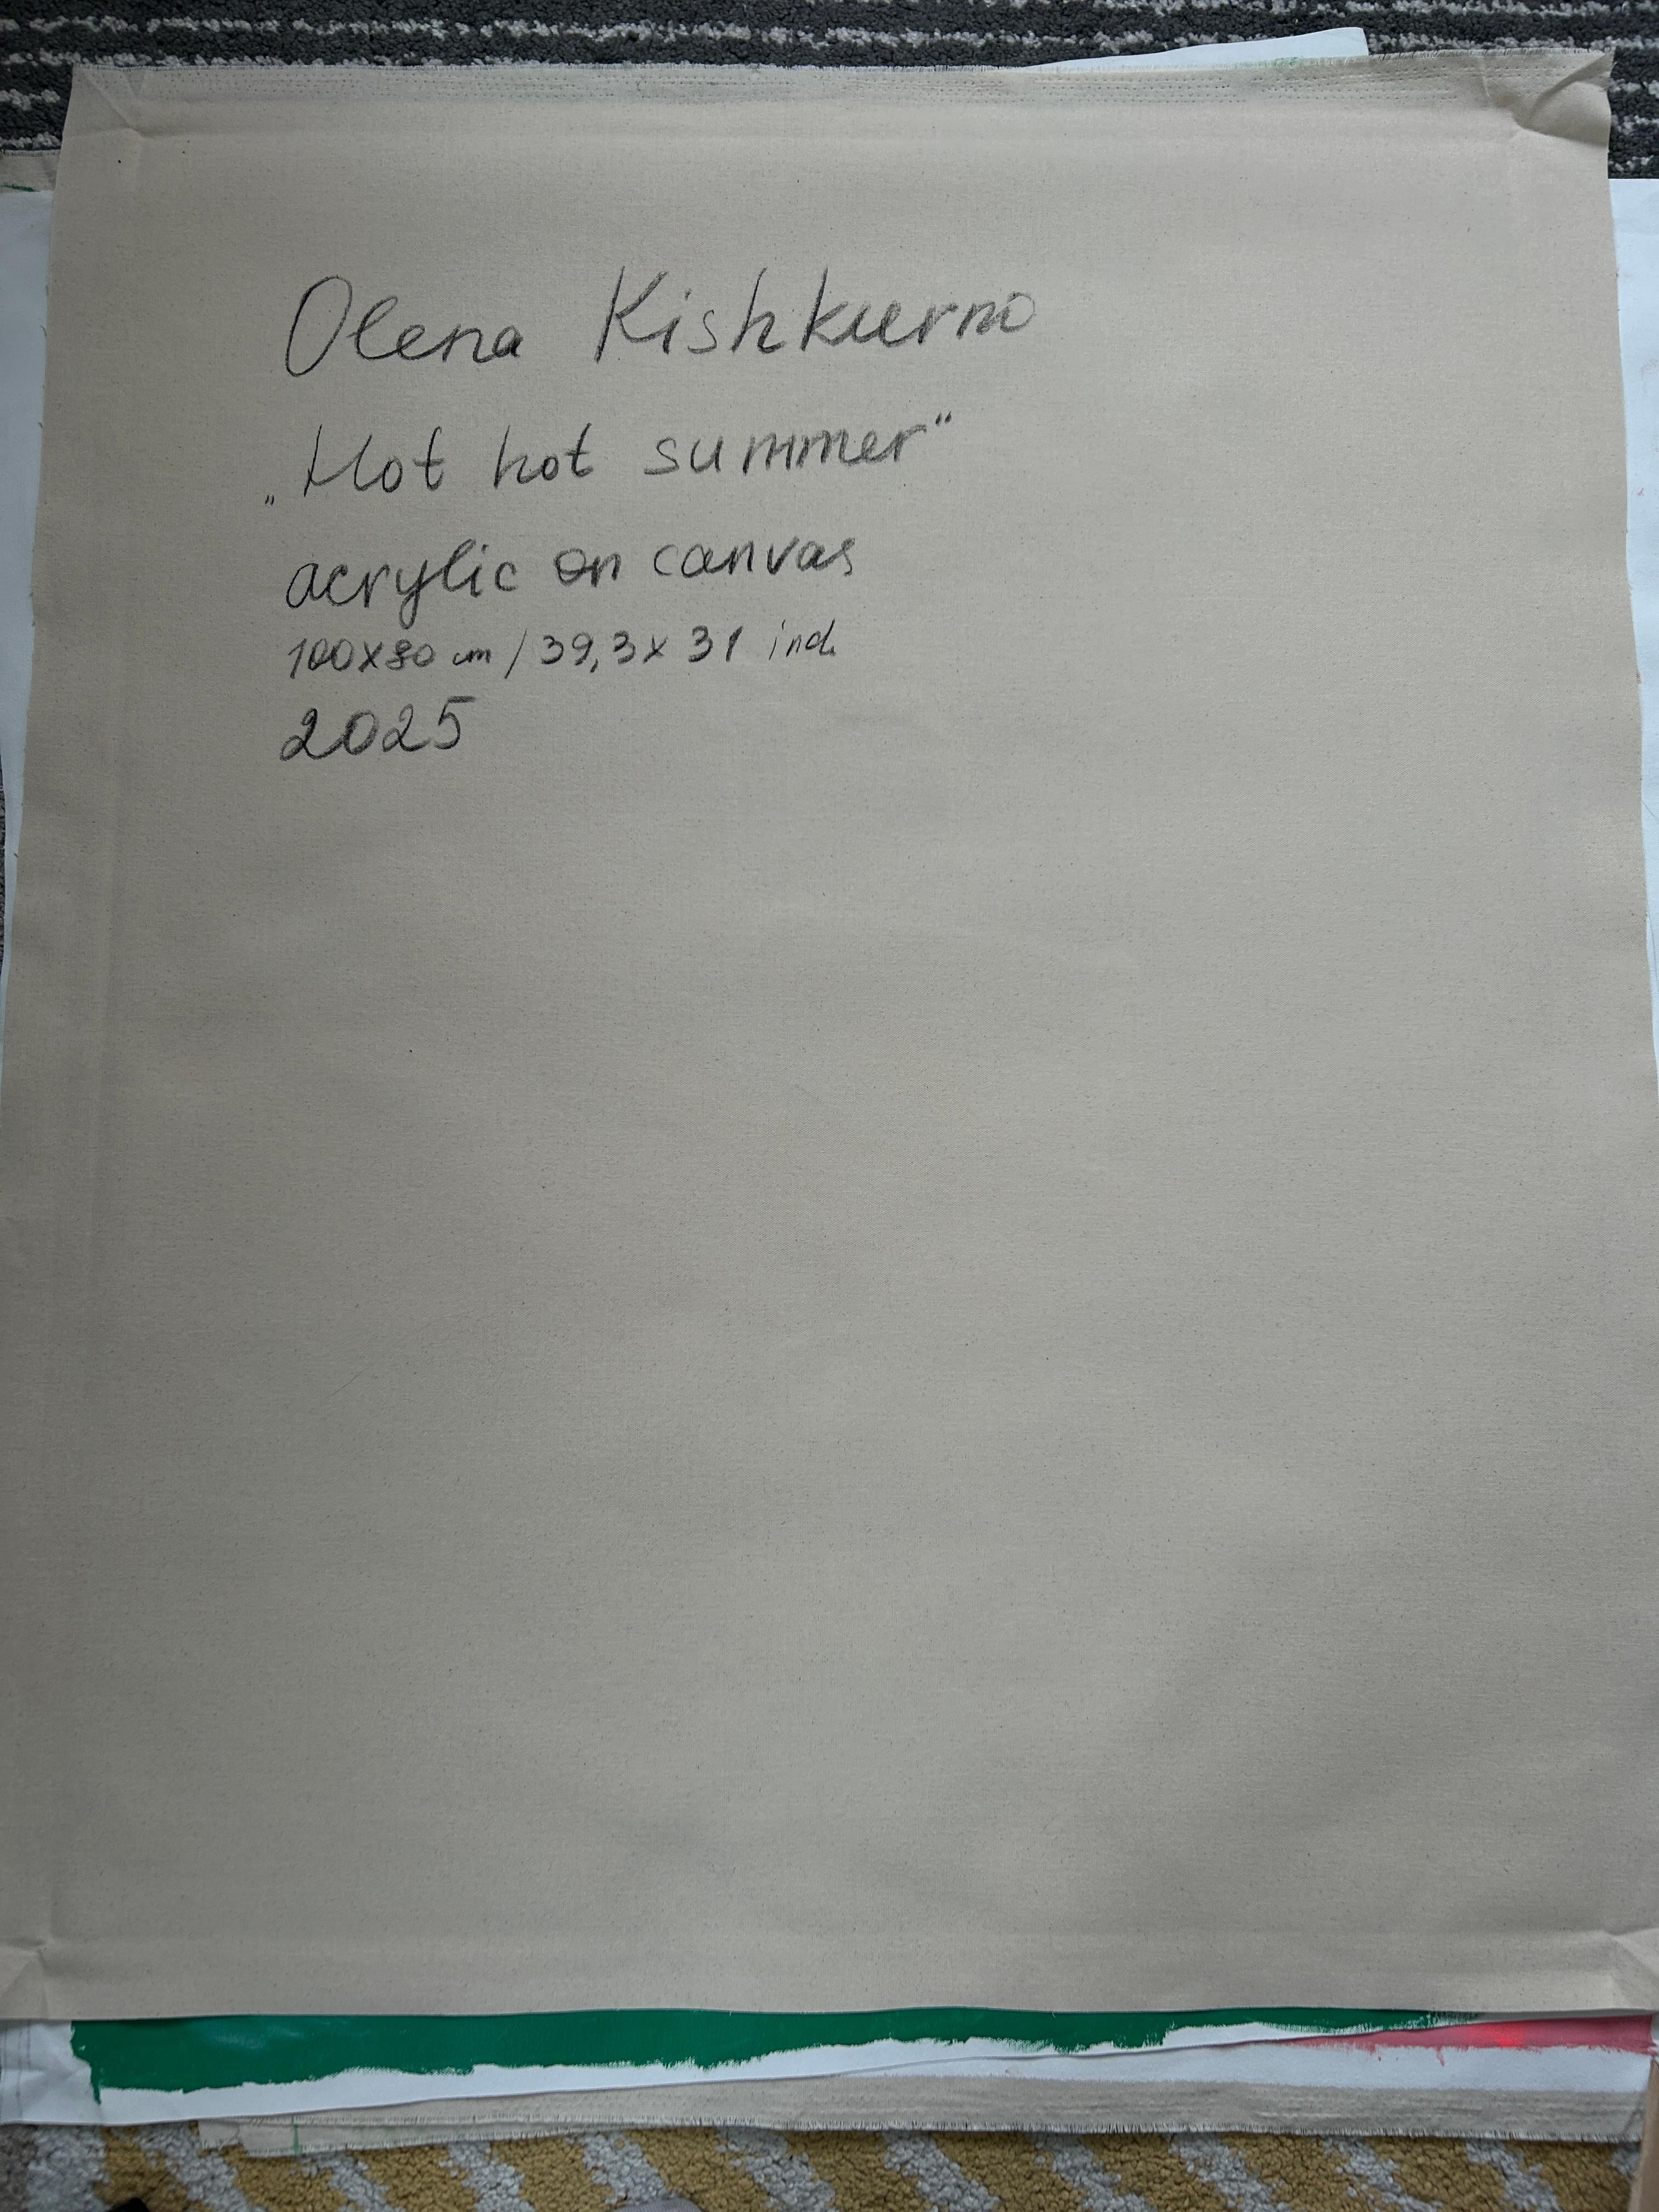 Olena Kishkurno
„Hot hot summer“
acrylic on canvas
100x80 cm / 39,3x 31 inch
2025